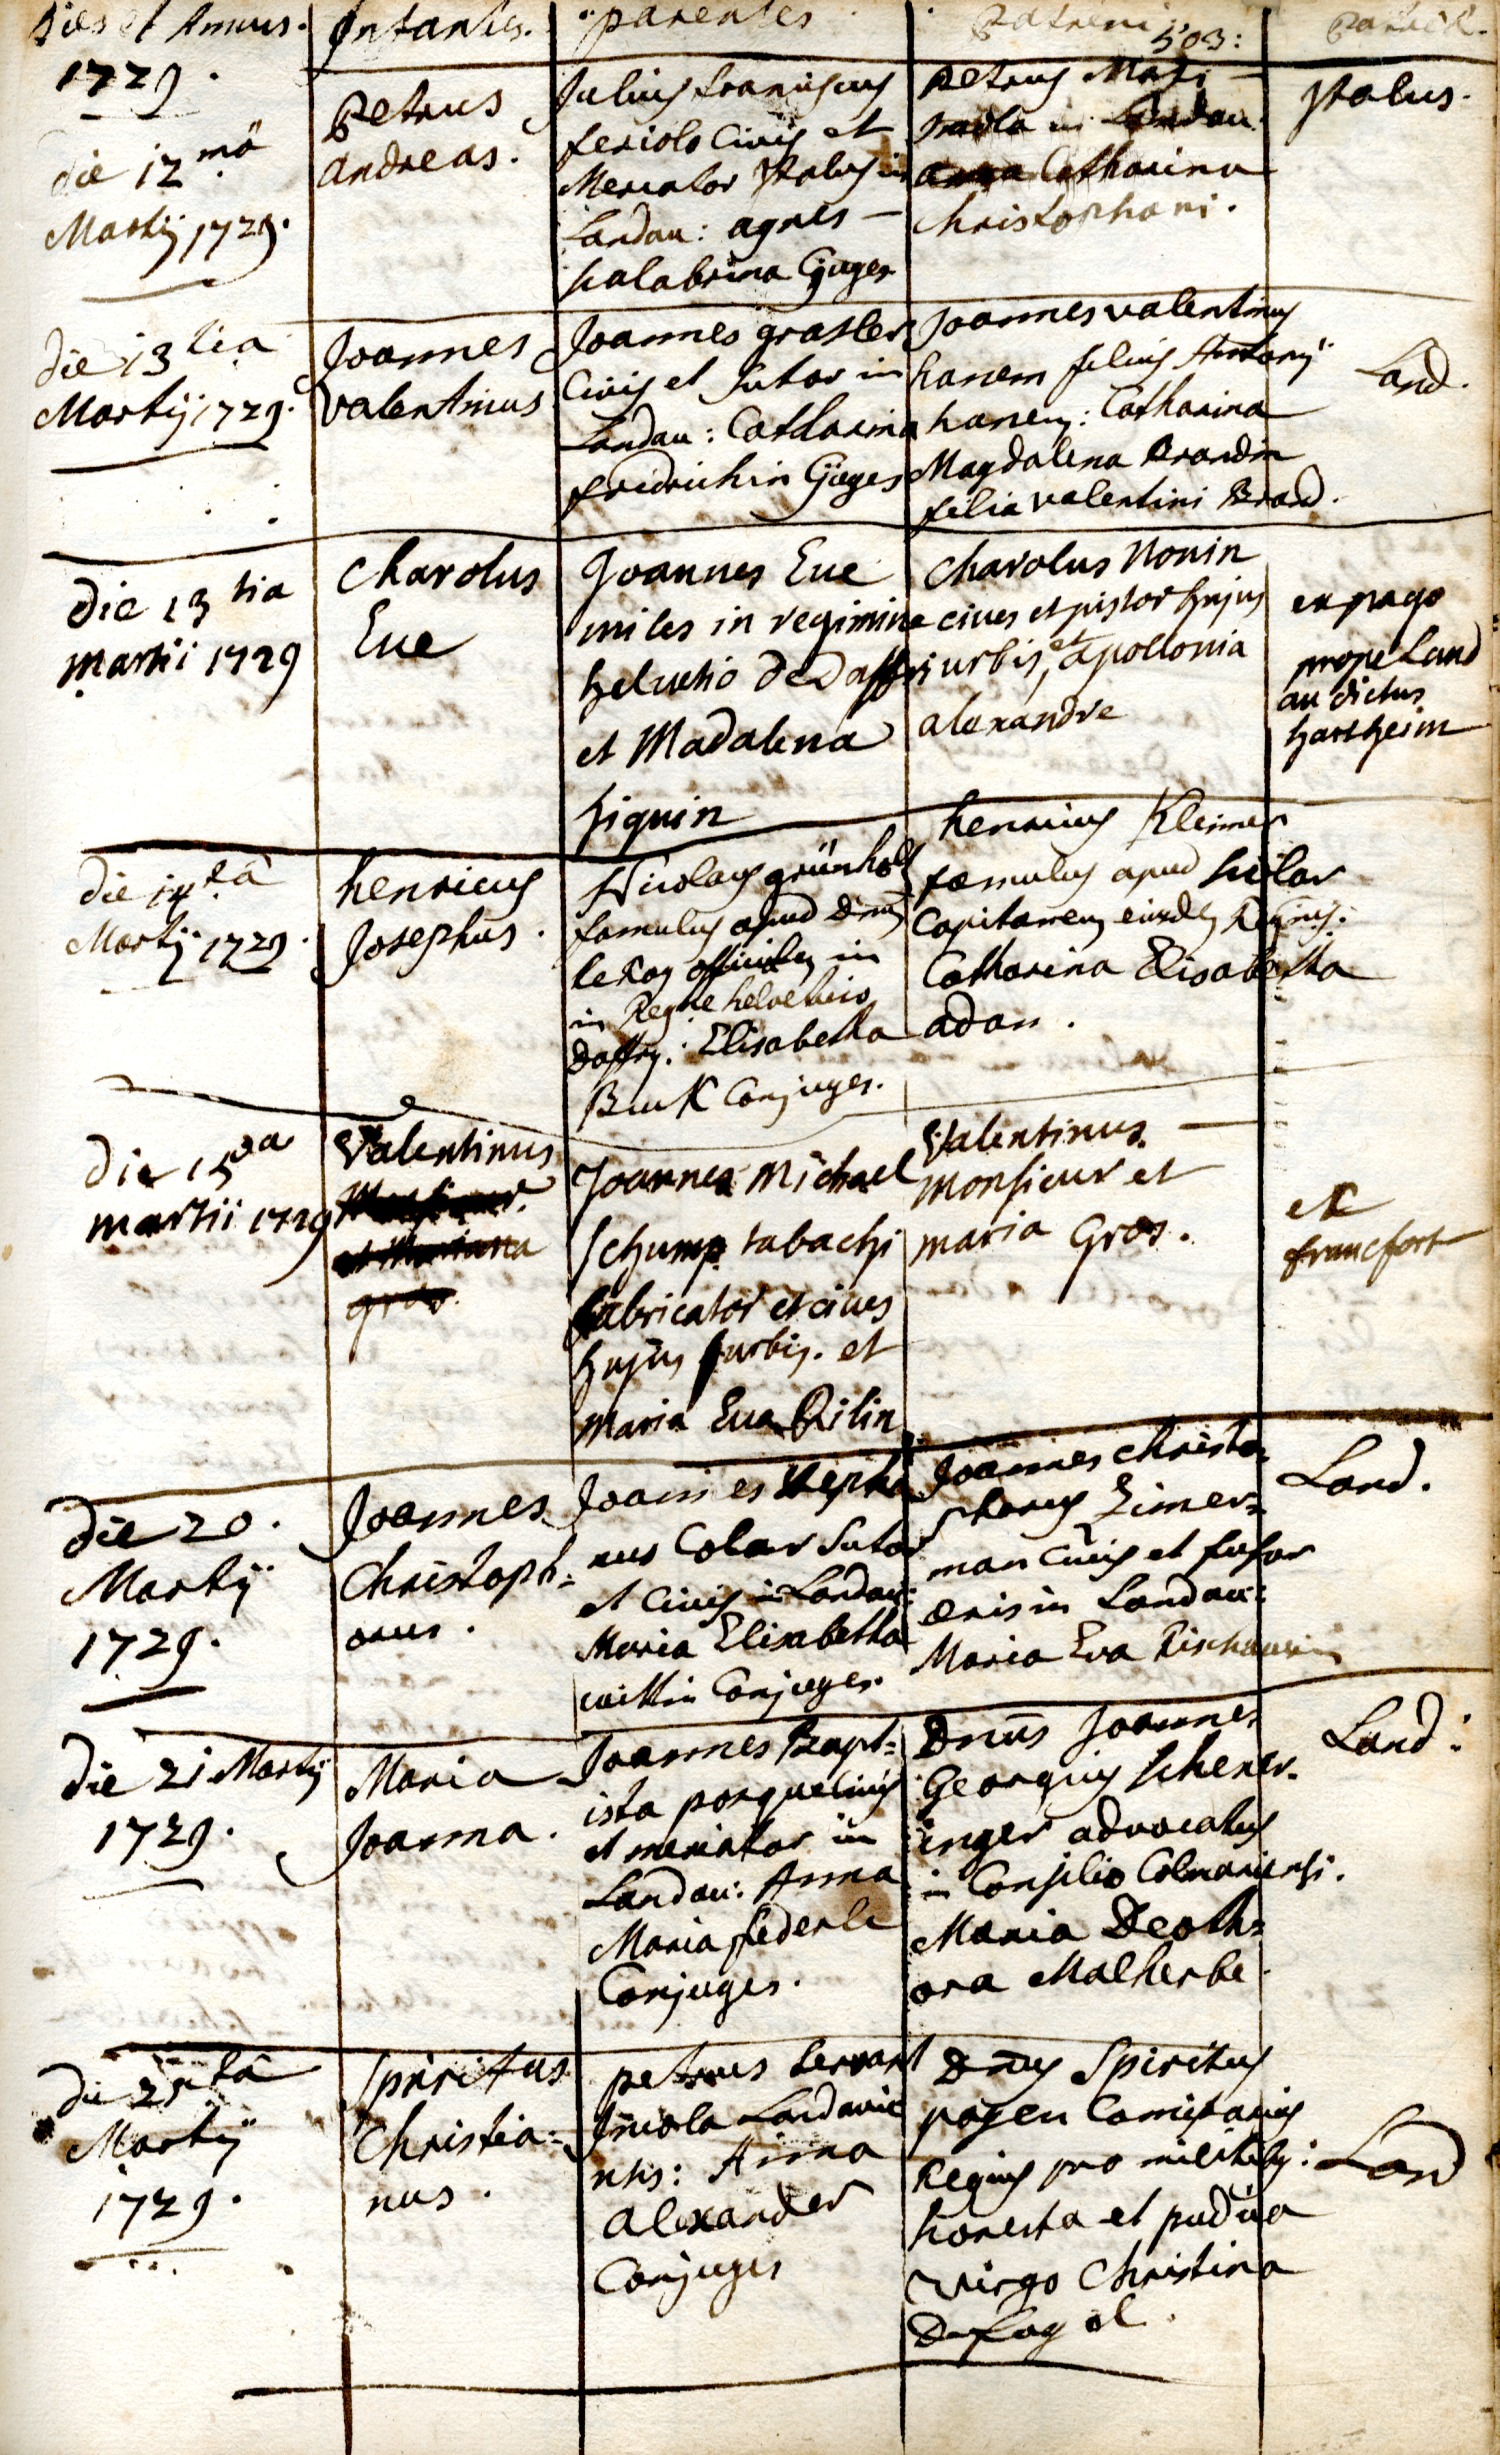 Dies et Annus. Infantes. parentes Patrini 503: Patria.
1729.
die 12 mo
Martij 1729.
Petrus
Andreas.
Julius franciscus
feriolo Civis et
Mercator Italus in
Landau: agnes
scalabrina Cjuges
Petrus
incola in Landau.
Catharina
Christophani.
Italus.
die 13 tia
Martij 1729.
Joannes
valentinus
Joannes grasler
Civis et sutor in
Landau: Catharina
fridrichin Cjuges
Joannes valentinus
hanem filius Antonij
hanem: Catharina
Magdalena Brandin
filia valentini Brand.
Land.
die 13 tia
martii 1729
Charolus
Eue
Joannes Eue
miles in regimine
helvetio de Daffri
et Madalena
piquin
Charolus Nonin
cives et pistor hujus
urbis, et apollonia
alexandre
ex pago
prope Land
au dictus
hartheim
die 14 ta
Martij 1729.
henricus
Josephus.
Nicolaus grünholz
famulus apud Dnum
leroy in
in Regne helvetico
Daffry: Elisabetha
Buck Conjuges.
henricus Kleimer
famulus apud
Capitaneum eiusdem Reginis:
Catharina Elisabetha
adan.
die 15 ta
martii 1729
Valentinus
et Mariana
gros.
Joannes Michael
Schump tabachi
fabricator et cives
hujus urbis. et
maria Eva Rilin
Valentinus
Monsieur et
maria Gros.
ex
francfort
die 20.
Martij
1729.
Joannes
Christoph=
orus.
Joannes stepha
nus Colar Sutor
et Civis in Landau:
Maria Elisabetha
wittin Conjuges.
Joannes christo=
phorus Zimer=
man Civis et fusor
æris in Landau:
Maria Eva
Land.
die 21 Martij
1729.
Maria
Joanna.
Joannes Bapt=
ista porquelinus
et mercator in
Landau: Anna
Maria federle
Conjuges.
Dnus Joannes
Georgius scherer=
inger advocatus
in Consilio Colmariensi.
Maria Deoth=
ora Malherbe
Land:
die 21 ta
Martij
1729.
Spiritus
Christia=
nus.
petrus servant
Incola Landavie
nsis: Anna
alexander
Conjuges
Dnus Spiritus
pagen Comissarius
Regius pro militib:
honesta et pudica
Virgo Christina
Land